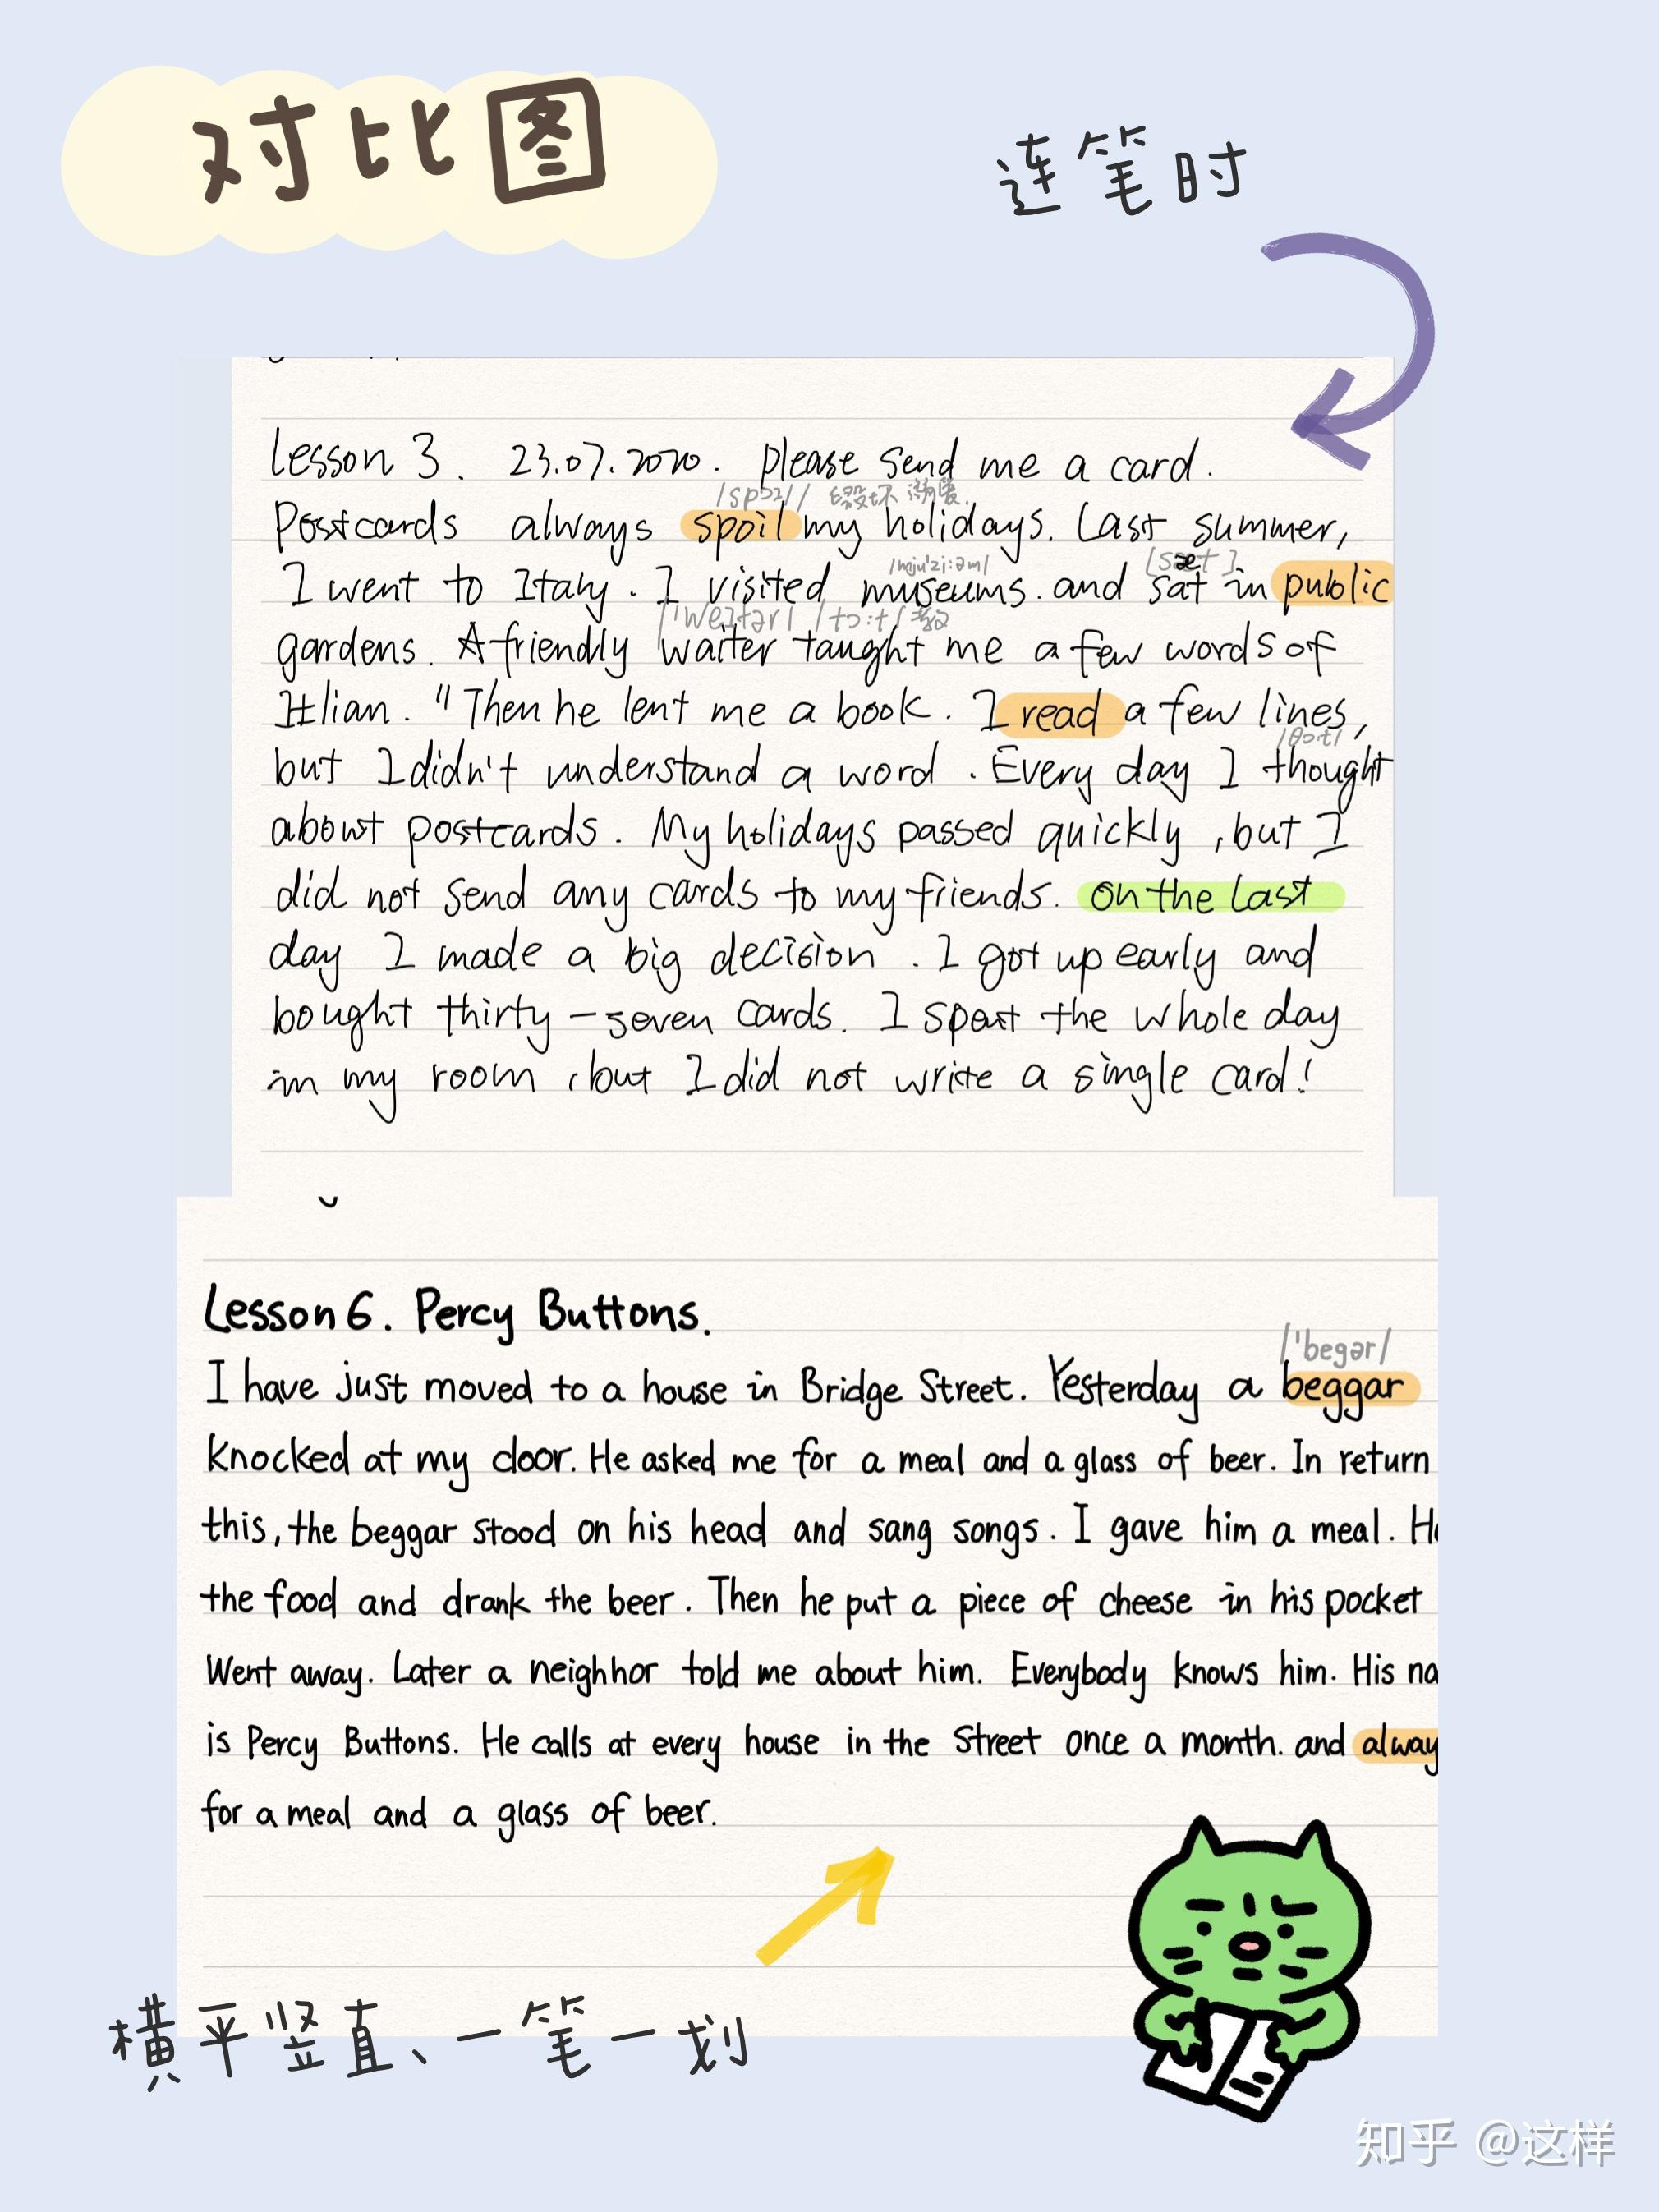 对比图
连笔时
Lesson 3. 23.07.2020. please send me a card.
/spɔɪl/ 毁坏
Postcards always spoil my holidays. Last summer,
/mju'zi:əm/ [sæt]
I went to Italy. I visited museums. and sat in public
/'weɪtər/ /tɔ:t/ 教
gardens. A friendly waiter taught me a few words of
Itlian. "Then he lent me a book. I read a few lines,
/θɔ:t/
but I didn't understand a word. Every day I thought
about postcards. My holidays passed quickly, but I
did not send any cards to my friends. on the last
day I made a big decision. I got up early and
bought thirty-seven cards. I spent the whole day
in my room, but I did not write a single card!
Lesson 6. Percy Buttons.
/'begər/
I have just moved to a house in Bridge Street. Yesterday a beggar
knocked at my door. He asked me for a meal and a glass of beer. In return
this, the beggar stood on his head and sang songs. I gave him a meal. He
the food and drank the beer. Then he put a piece of cheese in his pocket
Went away. Later a neighhor told me about him. Everybody knows him. His na
is Percy Buttons. He calls at every house in the Street once a month. and alway
for a meal and a glass of beer.
横平竖直、一笔一划
知乎 @这样